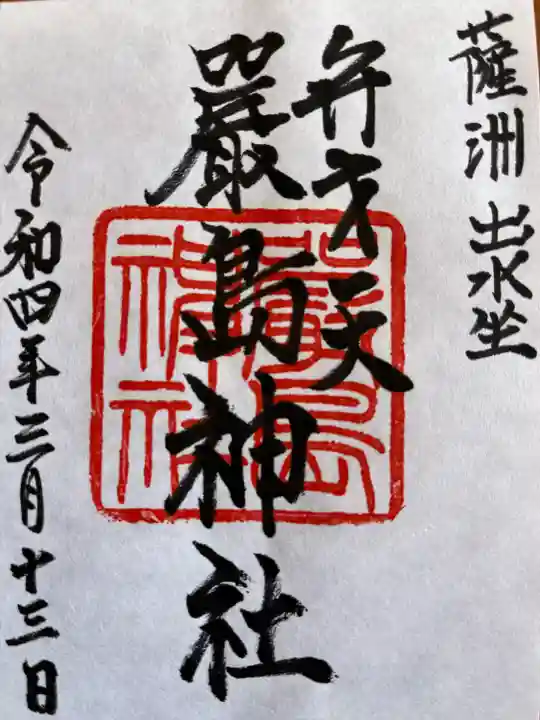 薩洲出水坐
弁才天
嚴島神社
嚴島
神社
令和四年三月十三日